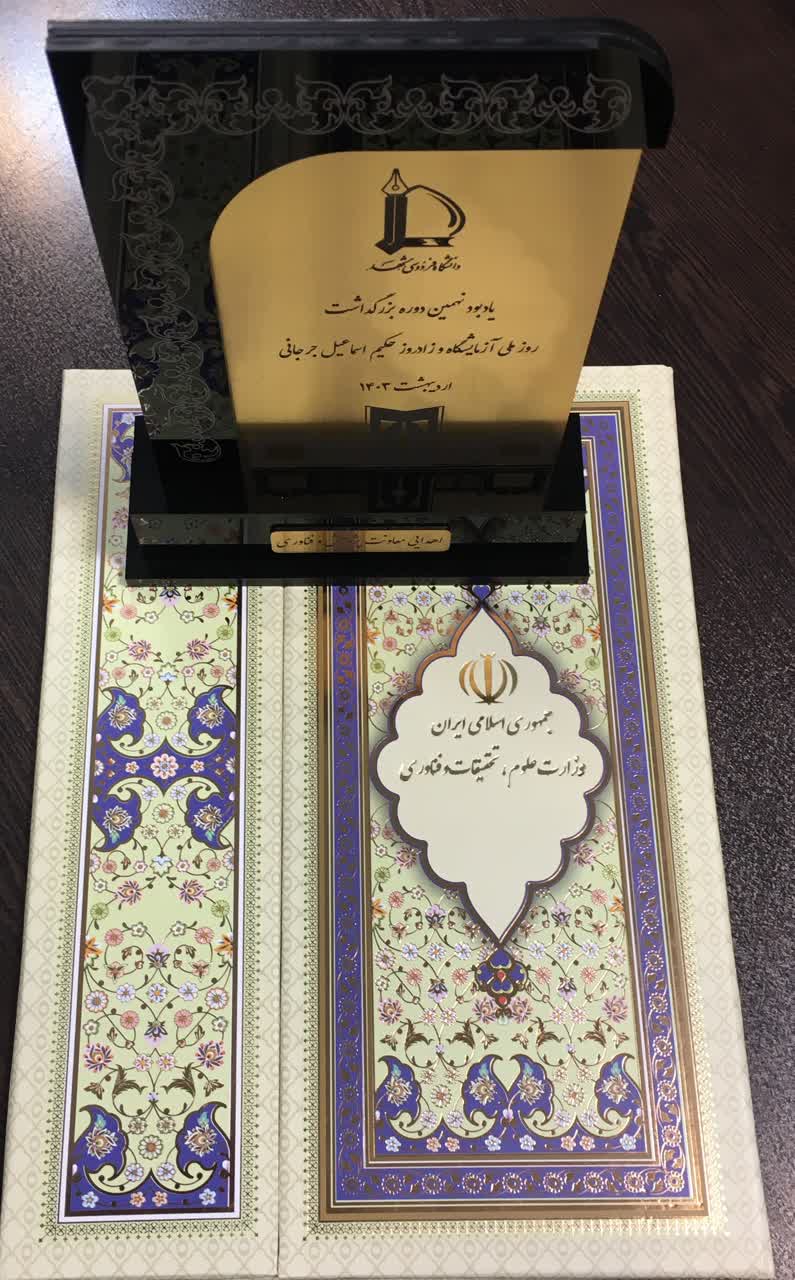 دانشگاه فردوسی مشهد
یادبود نهمین دوره بزرگداشت
روز ملی آزمایشگاه و زادروز حکیم اسماعیل جرجانی
اردیبهشت ۱۴۰۳
اهدایی معاونت پژوهش و فناوری
جمهوری اسلامی ایران
وزارت علوم، تحقیقات و فناوری